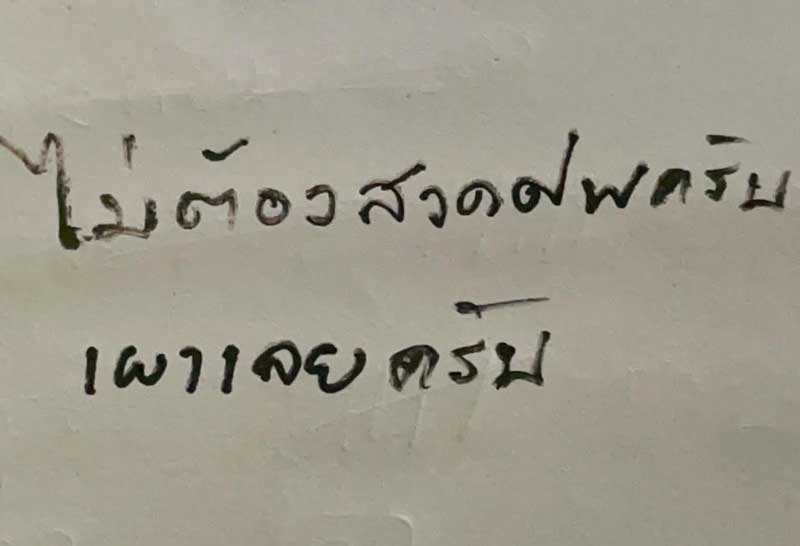 ไม่ต้องสวดศพครับ
เผาเลยครับ